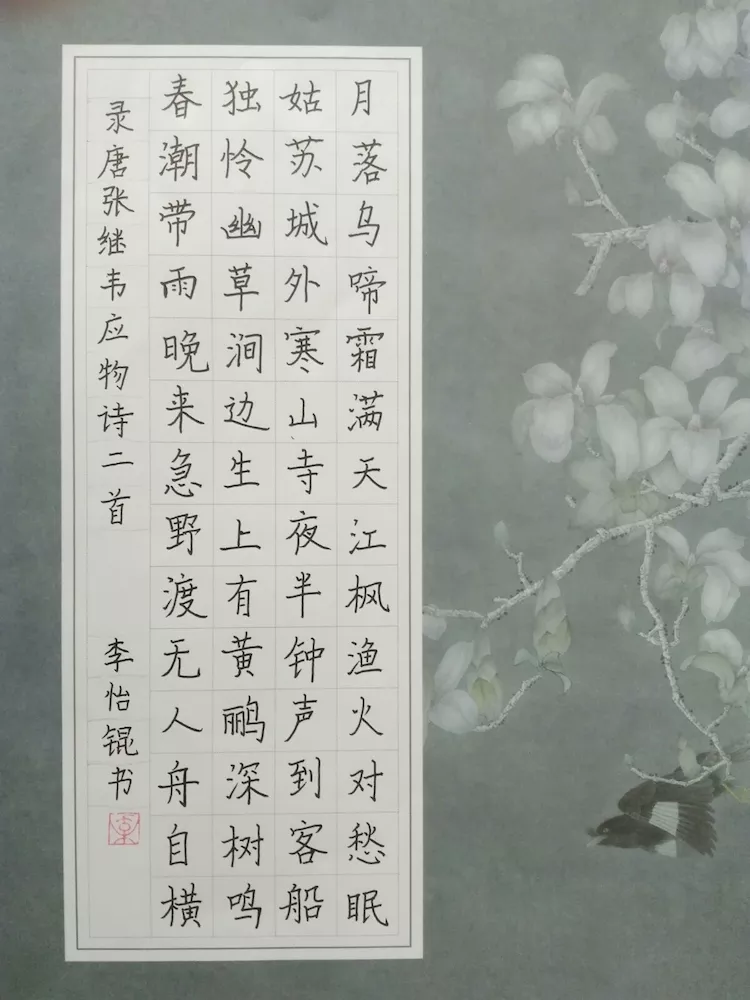 月落乌啼霜满天江枫渔火对愁眠
姑苏城外寒山寺夜半钟声到客船
独怜幽草涧边生上有黄鹂深树鸣
春潮带雨晚来急野渡无人舟自横
录唐张继韦应物诗二首 李怡锟书